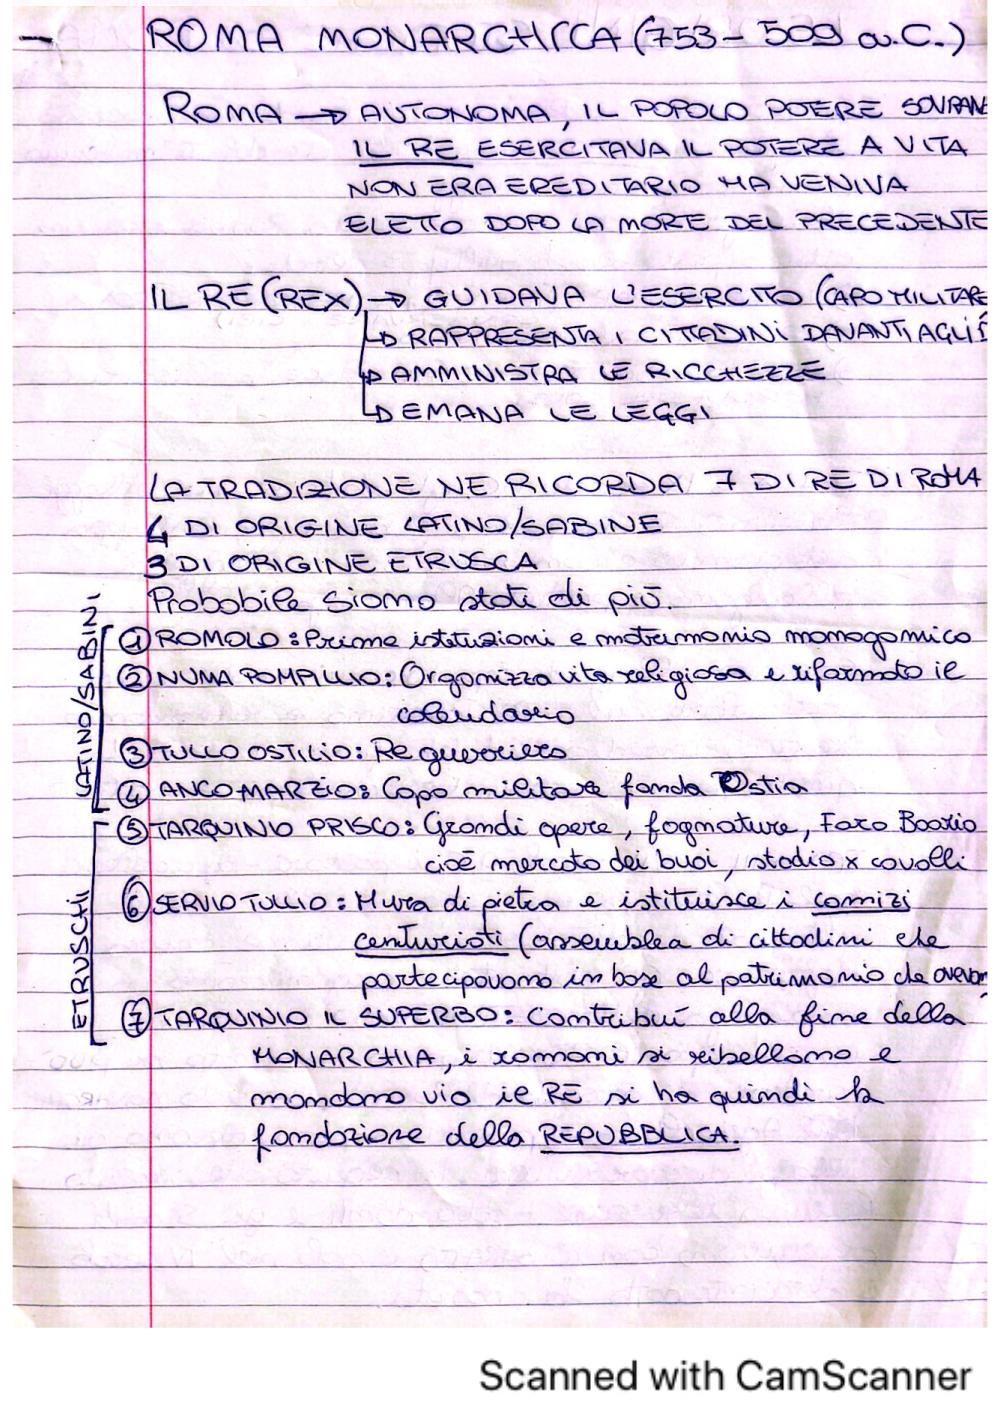 — ROMA MONARCHICA (753 - 509 a.C.)
ROMA → AUTONOMA, IL POPOLO POTERE SOVRAN
IL RE ESERCITAVA IL POTERE A VITA
NON ERA EREDITARIO MA VENIVA
ELETTO DOPO LA MORTE DEL PRECEDENTE
IL RE (REX) → GUIDAVA L'ESERCITO (CAPO MILITARE
↳ RAPPRESENTA I CITTADINI DAVANTI AGLI
↳ AMMINISTRA LE RICCHEZZE
↳ EMANA LE LEGGI
LA TRADIZIONE NE RICORDA 7 DI RE DI ROMA
4 DI ORIGINE LATINO/SABINE
3 DI ORIGINE ETRUSCA
Probabile siano stati di più.
LATINO/SABINI
① ROMOLO: Prime istituzioni e matrimonio monogamico
② NUMA POMPILLIO: Organizza vita religiosa e riformato il
calendario
③ TULLO OSTILIO: Re guerriero
④ ANCO MARZIO: Capo militare fonda Ostia
ETRUSCHI
⑤ TARQUINIO PRISCO: Grandi opere, fognature, Foro Boario
cioè mercato dei buoi, stadio x cavalli
⑥ SERVIO TULLIO: Mura di pietra e istituisce i comizi
centuriati (assemblea di cittadini che
partecipavano in base al patrimonio che avevan
⑦ TARQUINIO IL SUPERBO: Contribuì alla fine della
MONARCHIA, i romani si ribellano e
mandano via il RE si ha quindi la
fondazione della REPUBBLICA.
Scanned with CamScanner